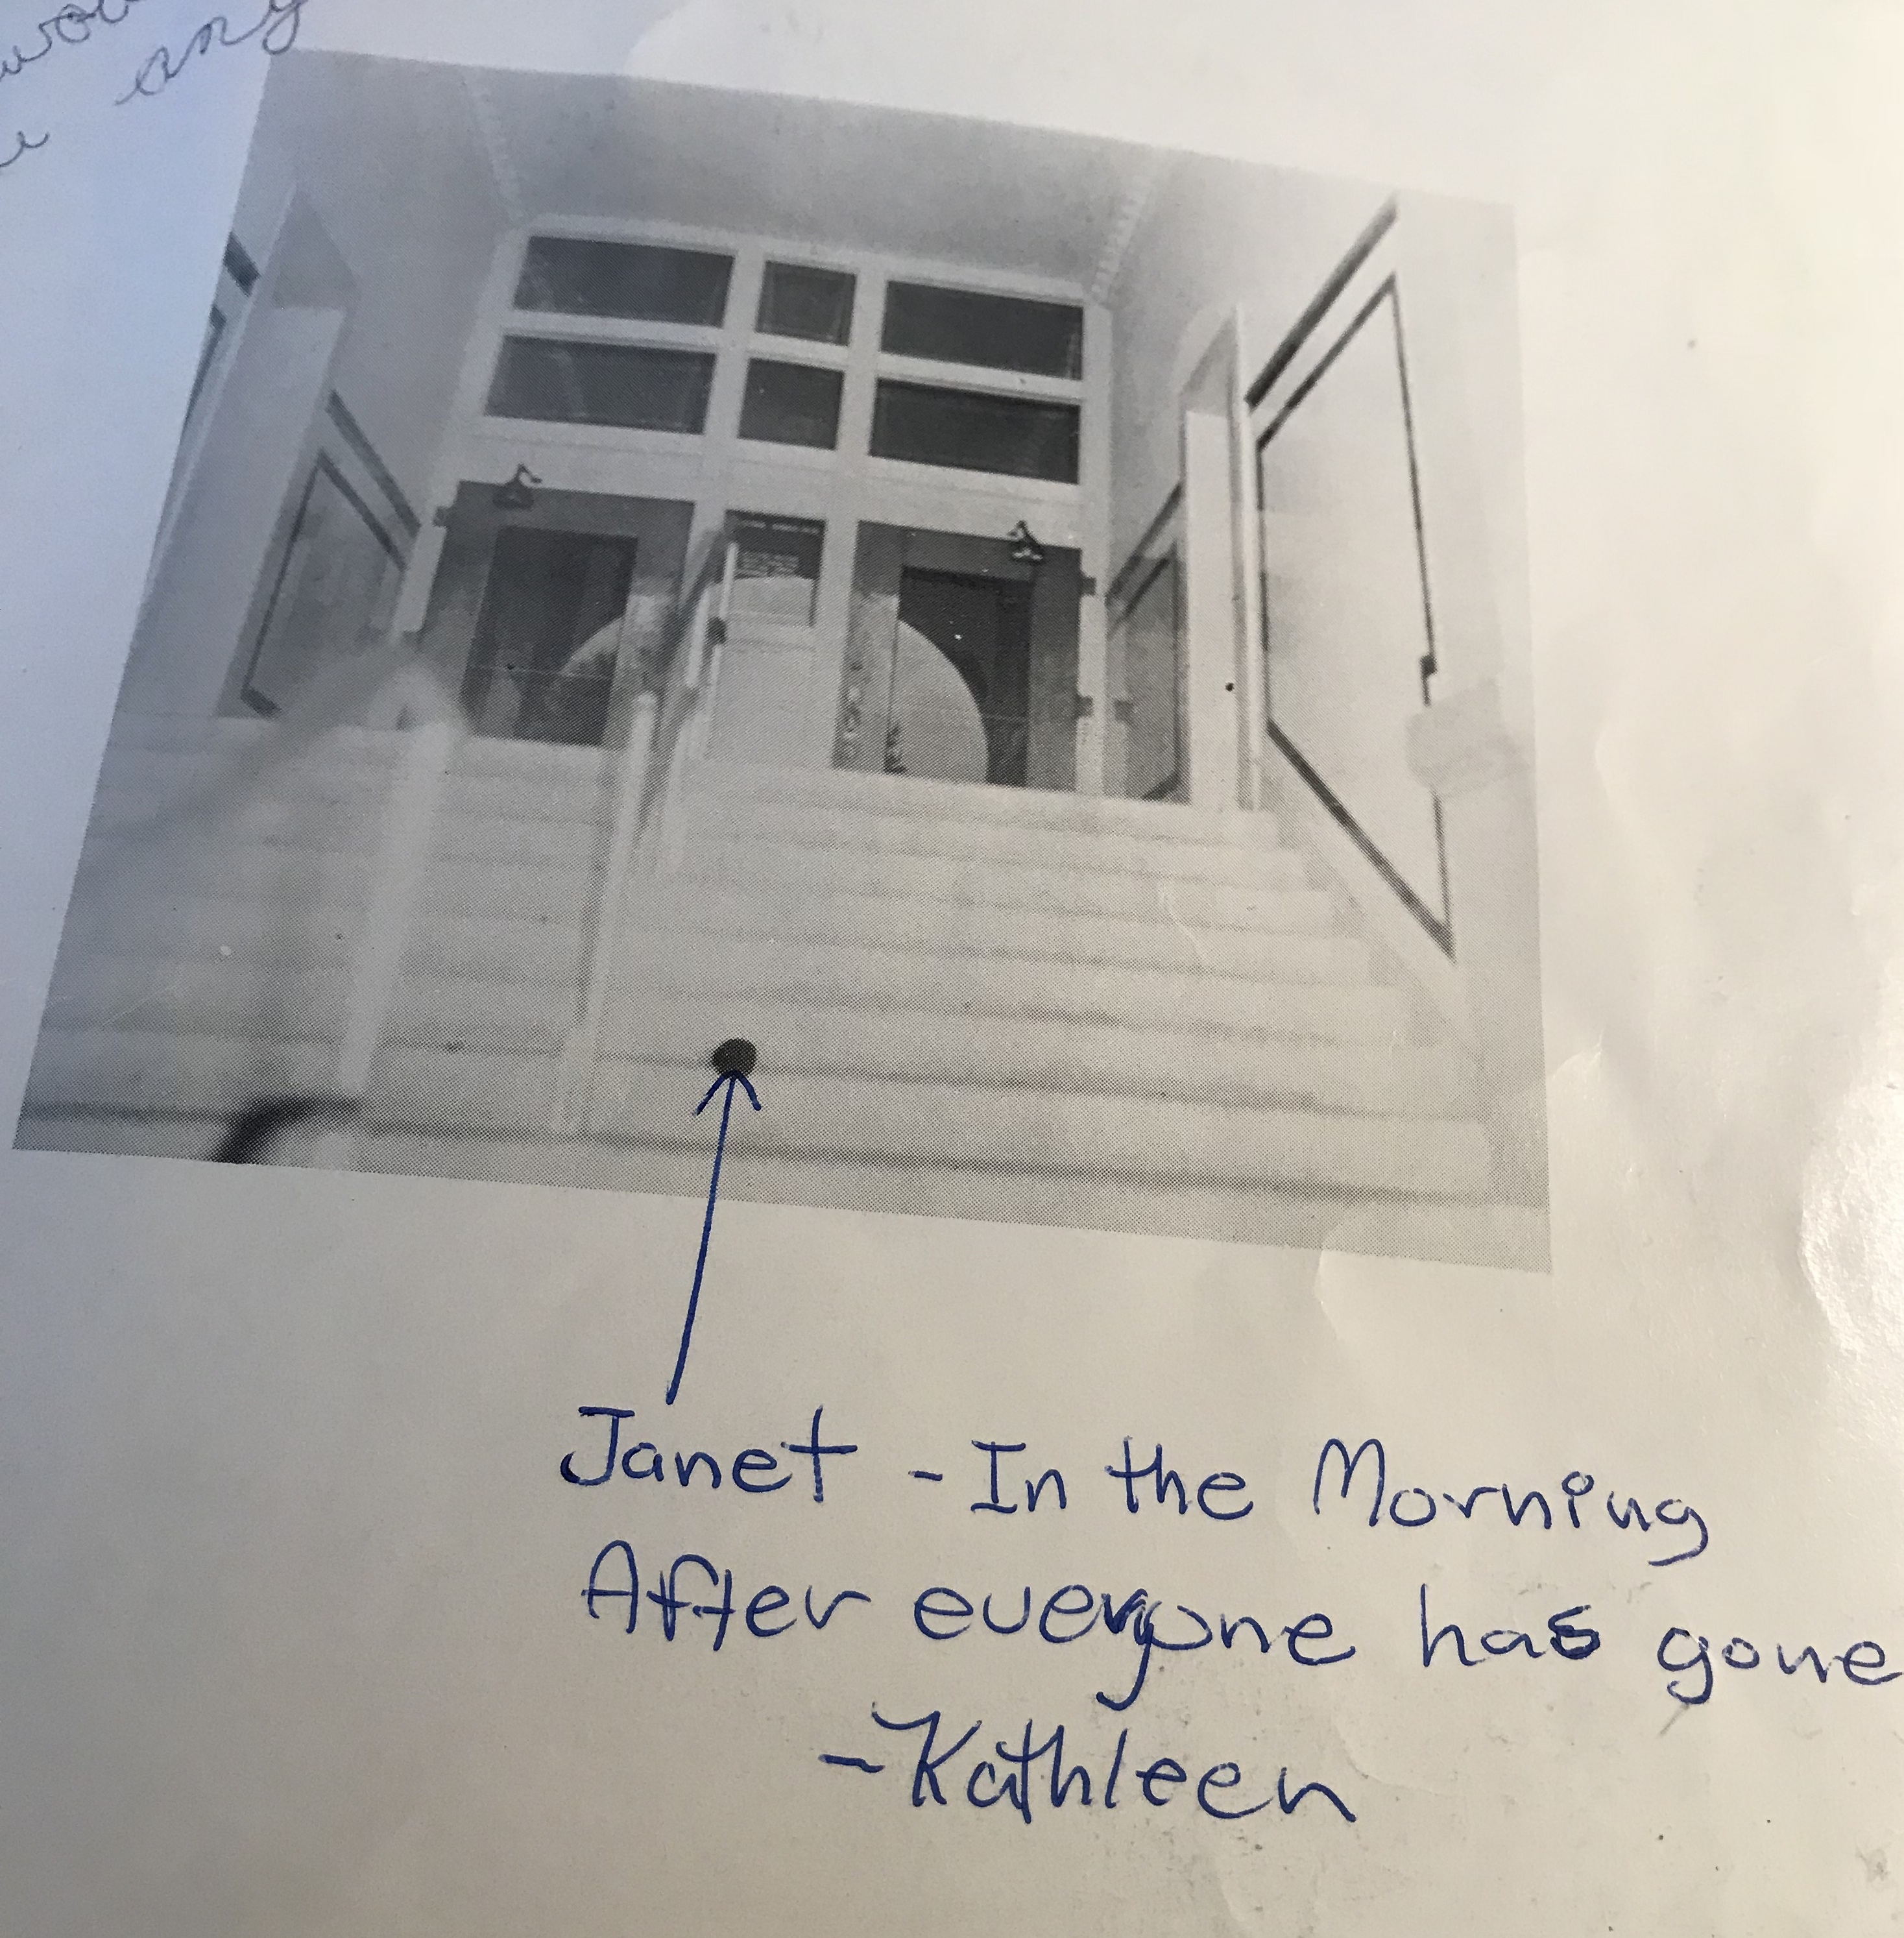 any
Janet - In the Morning
After everyone has gone
- Kathleen